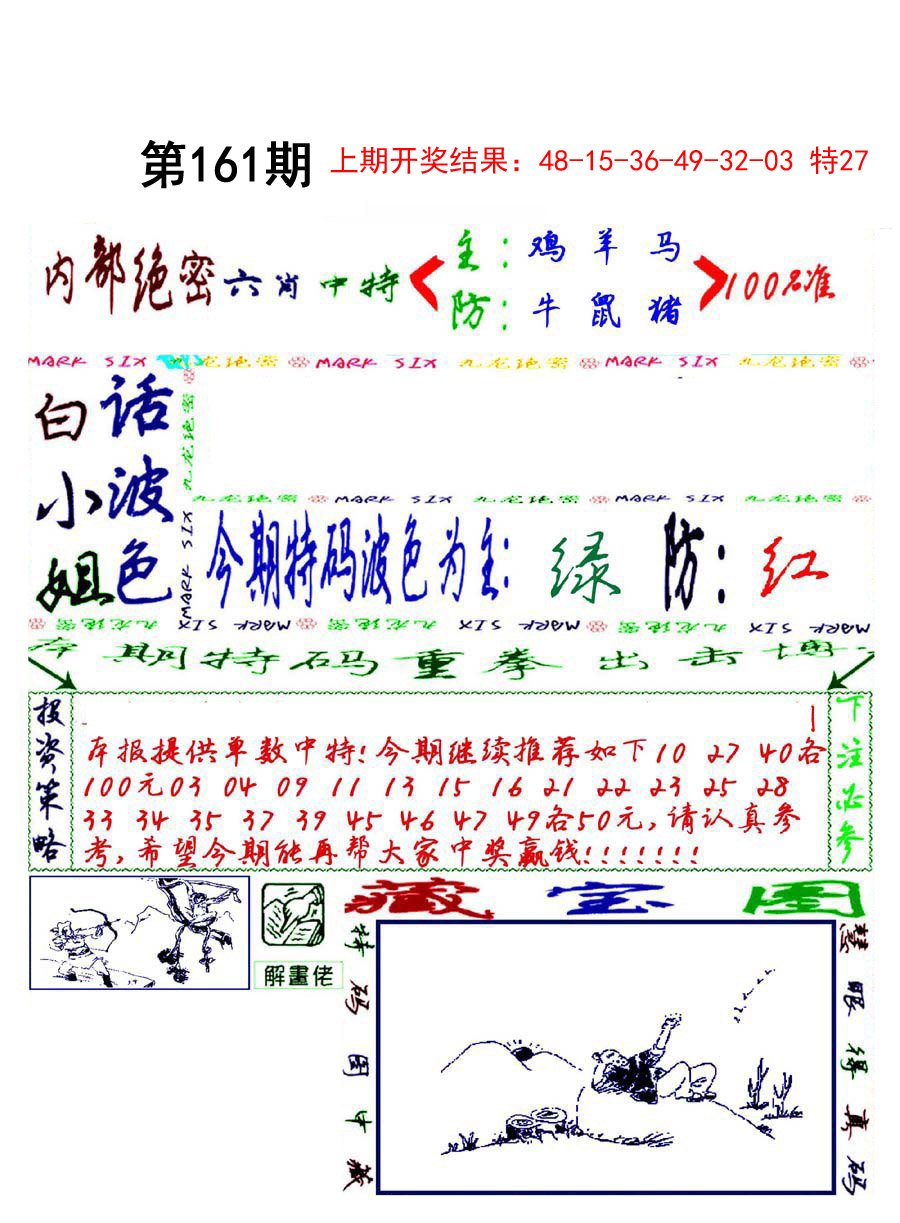 第161期 上期开奖结果：48-15-36-49-32-03 特27
内部绝密六肖中特
主：鸡羊马
防：牛鼠猪
100%准
MARK SIX 九龙绝密 MARK SIX 九龙绝密 MARK SIX 九龙绝密
白话
小波
姐色
九龙绝密
MARK SIX
九龙绝密 MARK SIX 九龙绝密 MARK SIX 九龙绝密
今期特码波色为主：绿 防：红
九龙绝密 MARK SIX 九龙绝密 MARK SIX 九龙绝密 MARK SIX
本期特码重拳出击博
投资策略
本报提供单数中特！今期继续推荐如下10 27 40各
100元03 04 09 11 13 15 16 21 22 23 25 28
33 34 35 37 39 45 46 47 49各50元，请认真参
考，希望今期能再帮大家中奖赢钱！！！！！！！
下注必参
解畫佬
藏宝图
特码图中藏
慧眼得真码